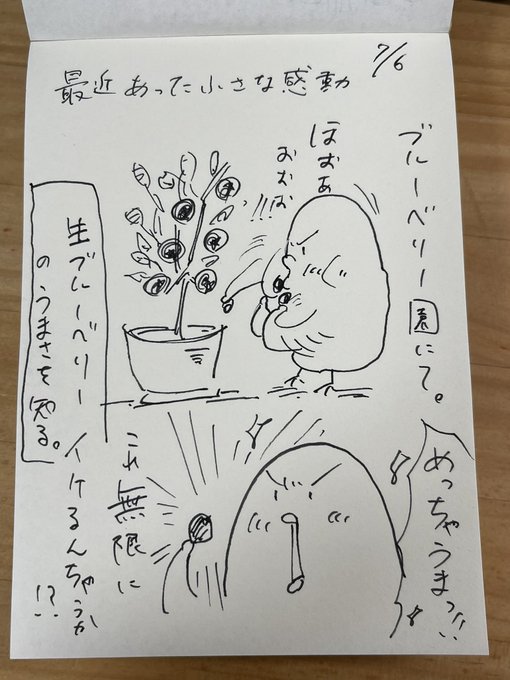 7/6
最近あった小さな感動
ブルーベリー園にて。
ほおぁ
おおお
!!!
生ブルーベリー
のうまさを知る。
めっちゃうまっ!!
これ無限に
イケるんちゃうか
!?